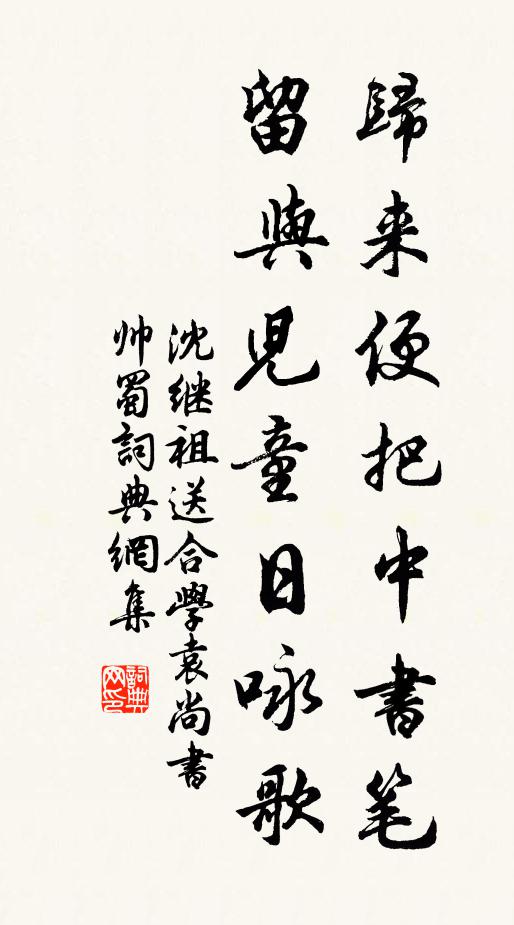 歸来便把中書笔
留與児童日咏歌
沈继祖送合學袁尚書
帅蜀詞典網集
詞典网印